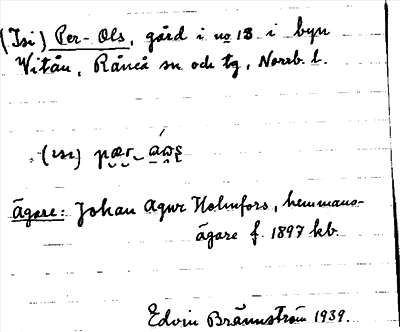 (Isi) Per-Ols, gård i no 13 i byn
Vitån, Råneå sn och tg, Norrb. l.
(ɪsɪ)
Ägare: Johan Agur Holmfors, hemmans-
ägare f. 1897 kb.
Edvin Brännström 1939.